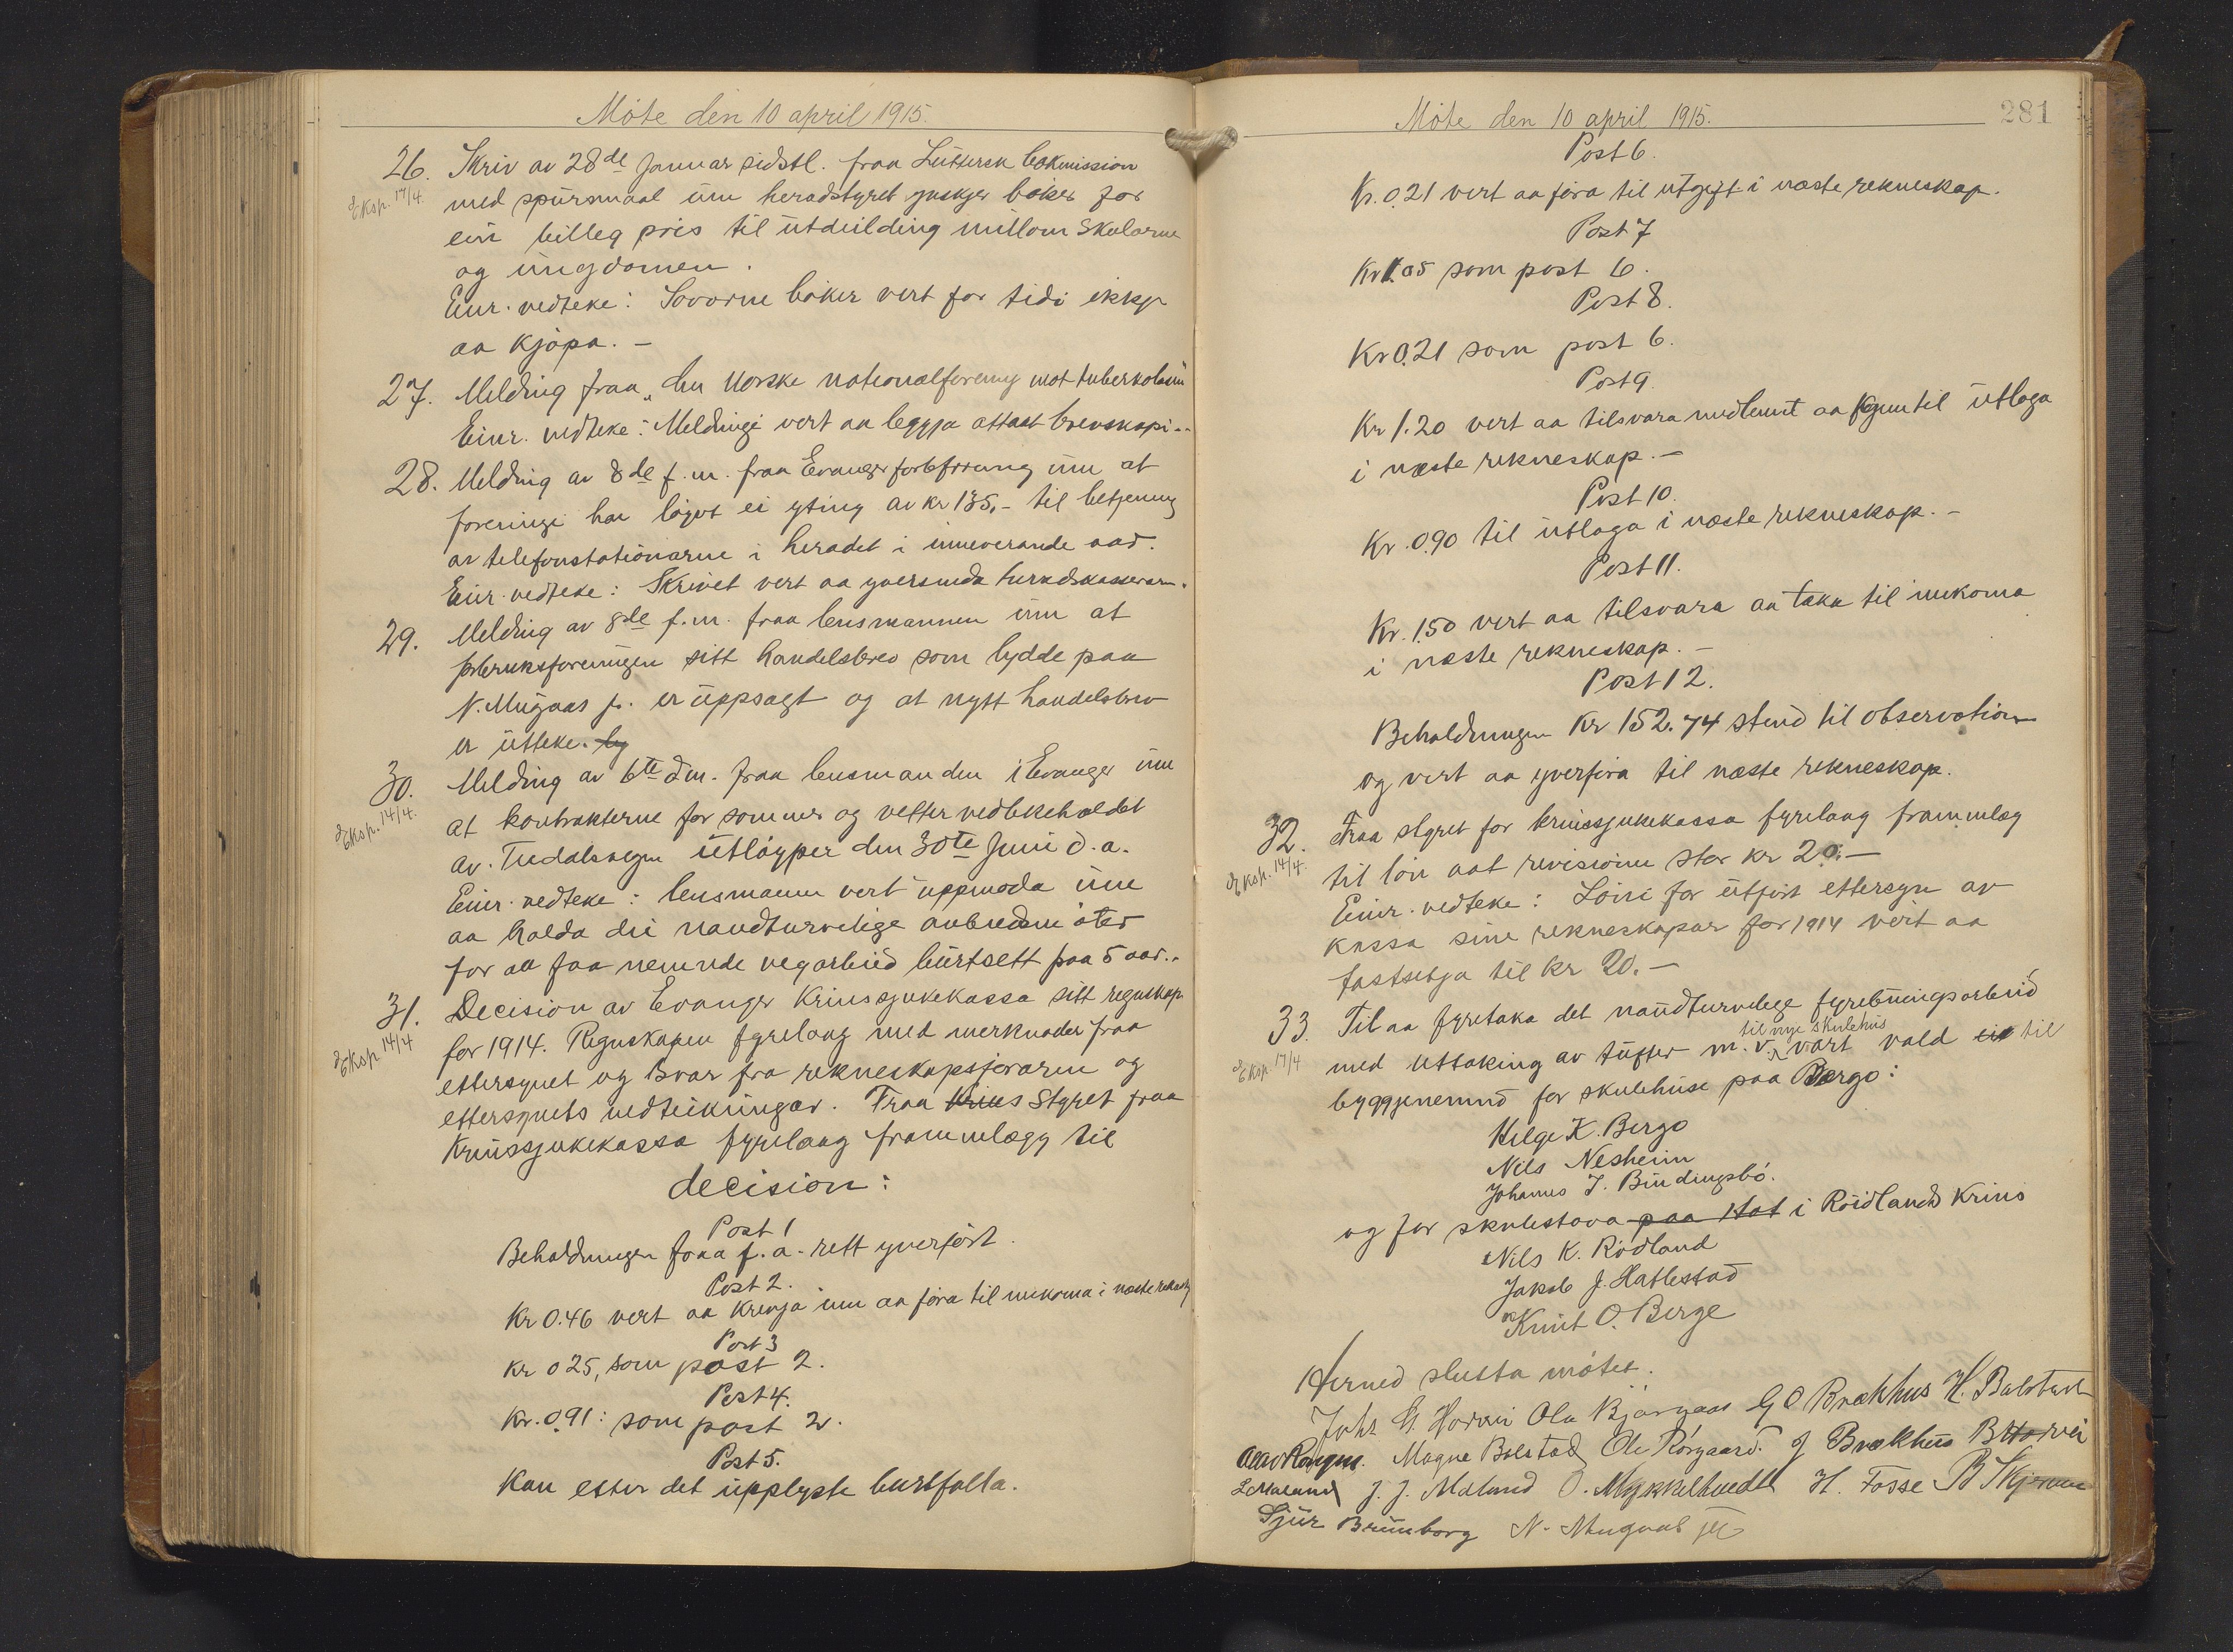 Möte den 10 april 1915.
26. Skriv av 28de Januar sidstl. fraa Luthersk bokmission
Eksp. 17/4.
med spursmaal um heradstyret ynskjer böker for
ein billeg pris til utdeilding millom Skularne
og ungdomen.
Einr. vedteke: Sovorne böker vert for tidi ikkje
aa kjöpa. —
27. Melding fraa „den Norske nationalforening mot tuberkolosen
Einr. vedteke: Meldingi vert aa leggja attaat brevskapi..
28. Melding av 8de f.m. fraa Evanger forbfrening um at
foreningi har löyvt ei yting av kr 135,- til betjening
av telefonstationarne i heradet i inneverande aar.
Einr. vedteke: Skrivet vert aa yversenda heradskasseraren.
29. Melding av 8de f.m. fraa lensmannen um at
forbruksforeningen sitt handelsbrev som lydde paa
N. Mugaas jr. er uppsagt og at nytt handelsbrev
er utteke. by
30. Melding av 6te dm. fraa lensmanden i Evanger um
Eksp. 14/4.
at kontrakterne for sommer og vetter vedlikeholdet
av Tudalsvegen utlöyper den 30te Juni d.a.
Einr. vedteke: lensmannen vert uppmoda um
aa halda dei naudturvelige anbudsmöter
for aa faa nemnde vegarbeid burtsett paa 5 aar..
31. Decision av Evanger Krinssjukekassa sitt regnskap
Eksp. 14/4
for 1914. Regnskapen fyrelaag med merknader fraa
ettersynet og Svar fra rekneskapsföraren og
ettersynets vedteikningar. Fraa Krins Styret fraa
Krinssjukekassa fyrelaag frammlegg til
decision:
Post 1
Beholdningen fraa f.a. rett yverfört.
Post 2.
Kr 0.46 vert aa krevja inn aa föra til innkoma i næste reknesk
Post 3
Kr 0 25, som post 2.
Post 4.
Kr. 0.91: som post 2.
Post 5.
Kan etter det upplyste burtfalla.
Möte den 10 april 1915.
281
Post 6.
Kr. 0.21 vert aa föra til utgift i næste rekneskap.
Post 7
Kr 1.05 som post 6.
Post 8.
Kr 0.21 som post 6.
Post 9.
Kr 1.20 vert aa tilsvara aa til utlaga
i næste rekneskap. —
Post 10.
Kr. 0.90 til utlaga i næste rekneskap. —
Post 11.
Kr. 1.50 vert aa tilsvara aa taka til innkoma
i næste rekneskap. —
Post 12.
Beholdningen Kr 152.74 stend til observation
og vert aa yverföra til næste rekneskap.
32. Fraa styret for krinssjukekassa fyrelaag frammlag
Eksp. 14/4.
til lön aat revisionen stor kr 20.—
Einr. vedteke: Löni for utfört ettersyn av
kassa sine rekneskapar for 1914 vert aa
fastsetja til kr 20.—
33. Til aa fyretaka det naudturvelege fyrebuingsarbeid
Eksp. 17/4
til nye skulehus
med uttaking av tufter m.v. vart vald ein til
byggjenemnd for skulehuse paa Bergo:
Helge K. Bergo
Nils Nesheim
Johannes J. Bindingsbö.
og for skulestova paa Hat i Röidlands Krins
Nils K. Rödland
Jakob J. Hatlestad
Knut O. Berge
Hermed slutta mötet.
Johs G. Horvei Ola Bjørgaas G O Brækhus H. Bolstad
Magne Bolstad Ole Rörgaard. J Brækhus B Horvei
L Mæland J. J. Mæland O. Mykkeltvedt H. Fosse B Skjerven
Sjur Brunborg N. Mugaas jr